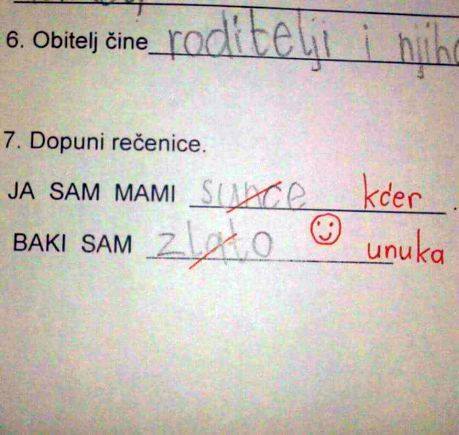 6. Obitelj čine roditelji i njiho
7. Dopuni rečenice.
JA SAM MAMI sunce kćer.
BAKI SAM zlato unuka